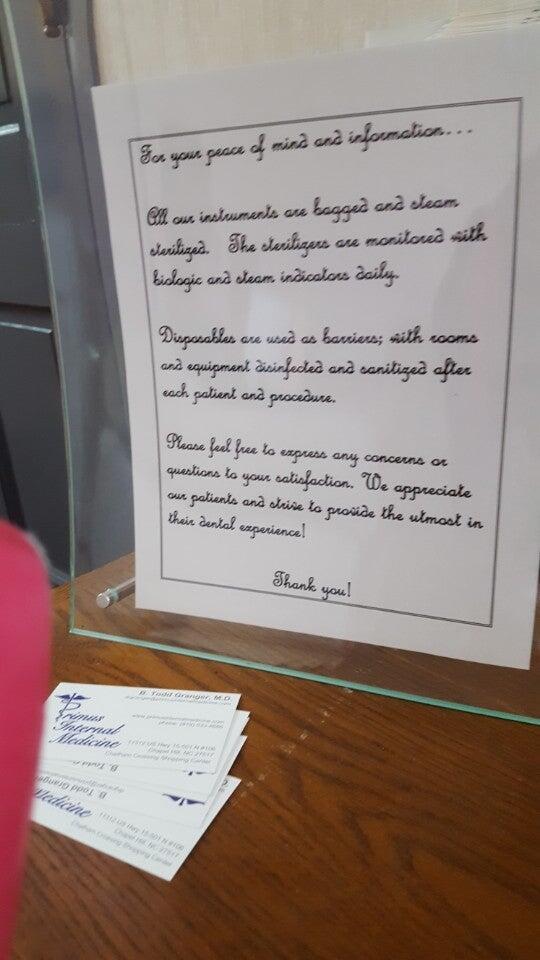 For your peace of mind and information...
All our instruments are bagged and steam
sterilized. The sterilizers are monitored with
biologic and steam indicators daily.
Disposables are used as barriers; with rooms
and equipment disinfected and sanitized after
each patient and procedure.
Please feel free to express any concerns or
questions to your satisfaction. We appreciate
our patients and strive to provide the utmost in
their dental experience!
Thank you!
B. Todd Granger, M.D.
Primus
Internal
Medicine
11312 US Hwy 15-501 N #106
Chapel Hill, NC 27517
Chatham Crossing Shopping Center
B. Todd Granger
Medicine
11312 US Hwy 15-501 N #106
Chapel Hill, NC 27517
Chatham Crossing Shopping Center